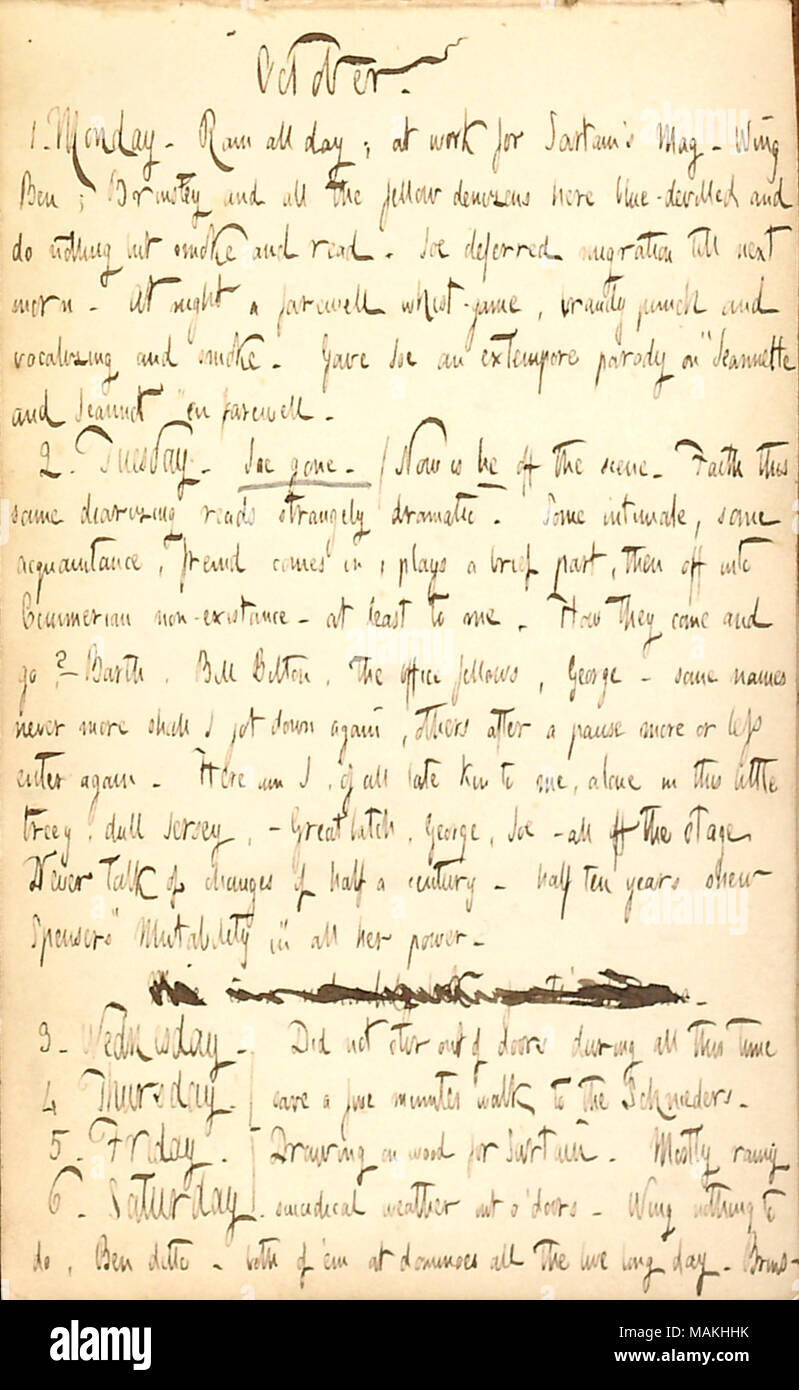 October.
1. Monday. Rain all day; at work for Sartain's Mag. Wing
Ben; Brinsley and all the fellow denizens here blue-devilled and
do nothing but smoke and read. Joe deferred migration till next
morn. At night a farewell whist-game, brandy punch and
vocalizing and smoke. Gave Joe an extempore parody on "Jeannette
and Jeannot" en farewell.
2. Tuesday. Joe gone. / Now is he off the scene. Faith this
same diarizing reads strangely dramatic. Some intimate, some
acquaintance, freind comes in, plays a brief part, then off into
Cimmerian non-existance - at least to me. How they come and
go? - Barth, Bill Bolton, the office fellows, George - some names
never more shall I jot down again, others after a pause more or less
enter again. Here am I, of all late kin to me, alone in this little
treey, dull Jersey, - Greatbatch, George, Joe - all off the stage.
Never talk of changes of half a century - half ten years shew
Spensers "Mutability" in all her power.
3. Wednesday. Did not stir out of doors during all this time
4 Thursday. save a five minutes walk to the Schneiders.
5. Friday. Drawing on wood for Sartain. Mostly rainy
6. Saturday. suicidical weather out o'doors. Wing nothing to
do, Ben ditto - both of 'em at dominoes all the live long day. Brins-
alamy
Image ID: MAKHHK
www.alamy.com